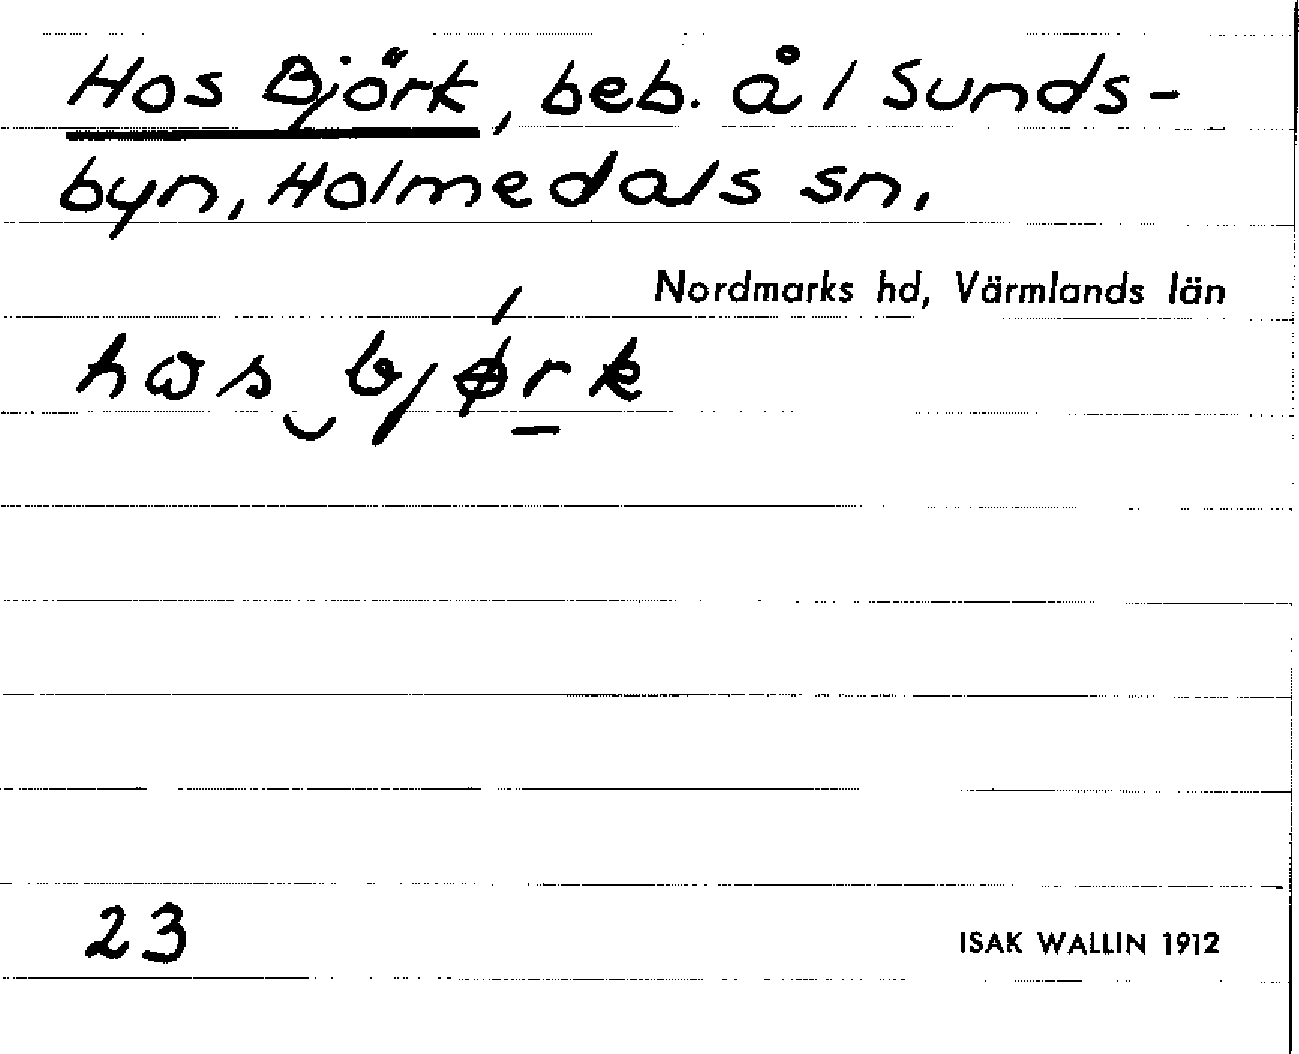 Hos Björk, beb. å 1 Sunds-
byn, Holmedals sn,
Nordmarks hd, Värmlands län
hɷs‿bjǿr̲k
23
ISAK WALLIN 1912